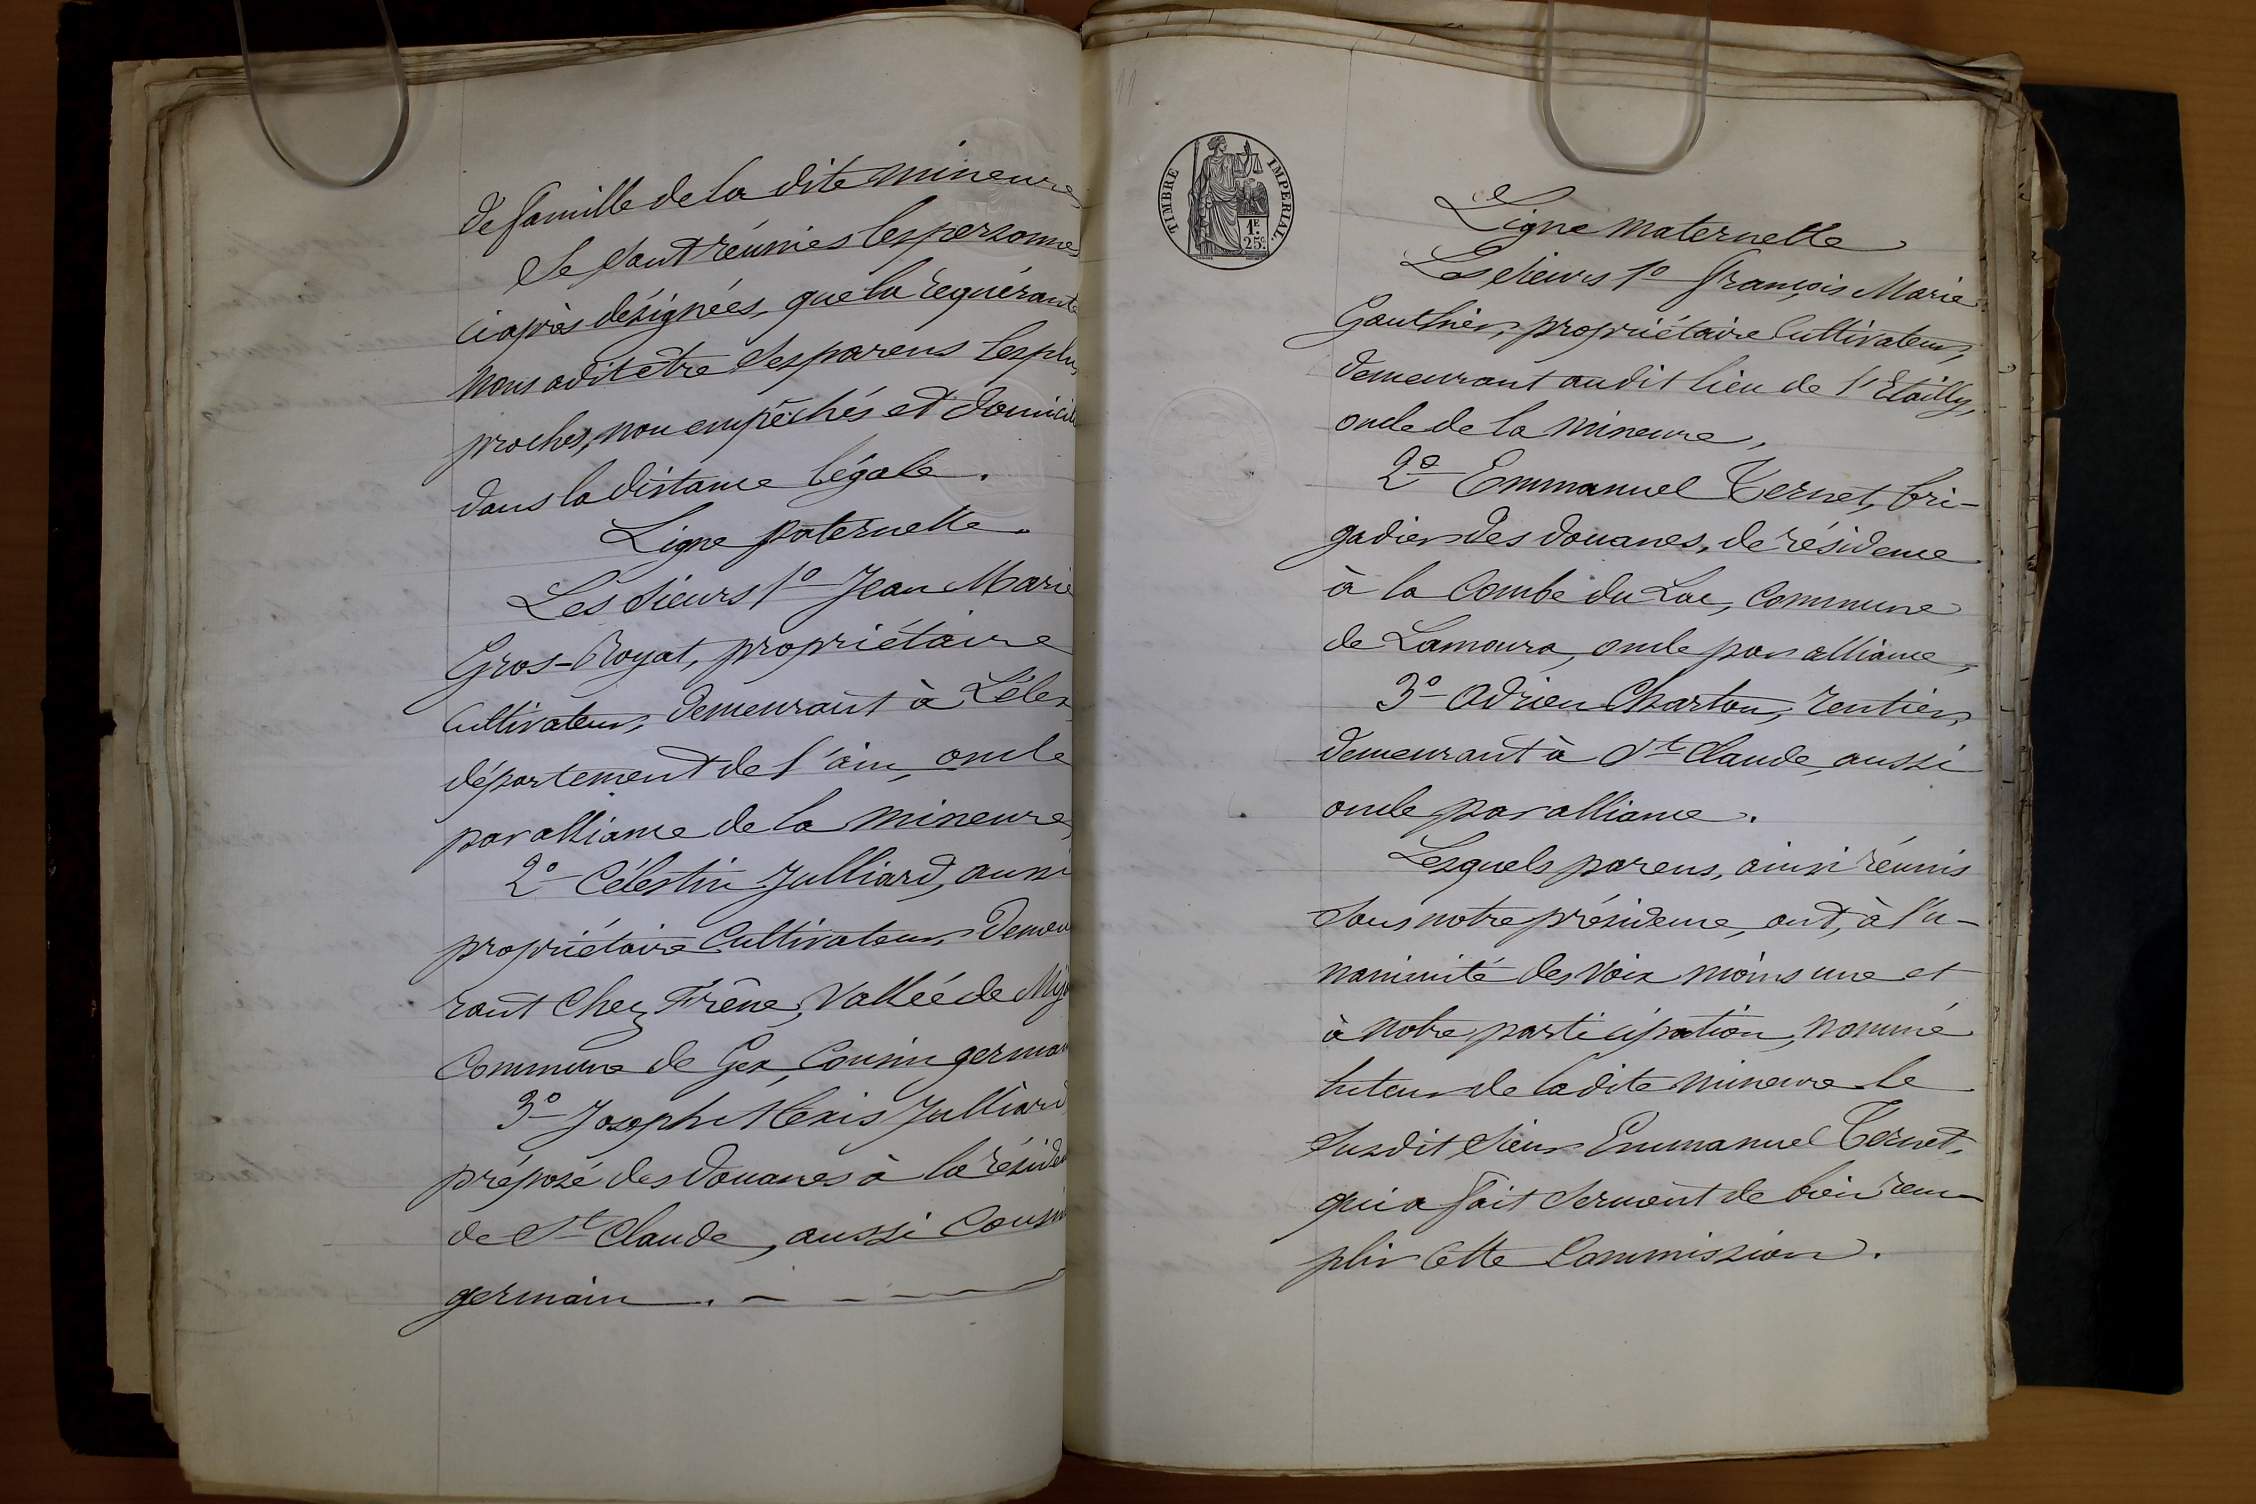 de famille de la dite mineure,
Se sont réunies les personnes
ci après désignées, que la requérante
nous a dit être ses parens les plus
proches, non empêchés et domicil
dans la distance légale.
Ligne paternelle.
Les sieurs 1º Jean Marie
Gros-Royat, propriétaire
cultivateur, demeurant à Lélex
département de l'ain, oncle
par alliance de la mineure,
2º Célestin Julliard, aussi
propriétaire cultivateur, demeu
rant chez Frêne, Vallée de Mij
commune de Gex, cousin germain
3º Joseph Alexis Julliard
préposé des douanes à la résiden
de St Claude, aussi cousin
germain.
11
TIMBRE IMPERIAL.
1F
25c.
Ligne maternelle
Les sieurs 1º François Marie
Gauthier, propriétaire cultivateur,
demeurant audit lieu de l'Etailly,
oncle de la mineure,
2º Emmanuel Ternet, bri-
gadier des douanes, de résidence
à la Combe du Lac, commune
de Lamoura, oncle par alliance,
3º Adrien Charton, rentier,
demeurant à St Claude, aussi
oncle par alliance.
Lesquels parens, ainsi réunis
sous notre présidence, ont, à l'u-
nanimité des voix moins une et
à notre participation, nommé
tuteur de la dite mineure le
susdit sieur Emmanuel Ternet,
qui a fait serment de bien rem-
plir cette commission.